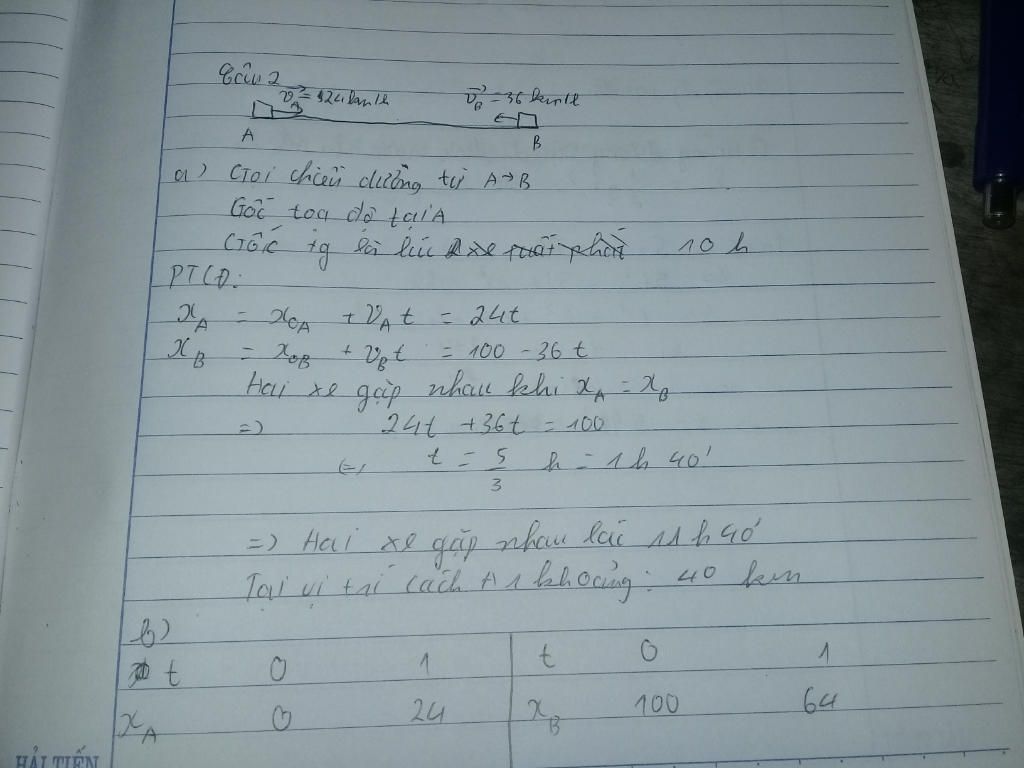 Câu 2
v⃗A = 24 km/h    v⃗B = 36 km/h
A    B
a) Gọi chiều dương từ A→B
Gốc toạ độ tại A
Gốc tg là lúc 2 xe xuất phát 10 h
PTCĐ:
xA = x0A + vA t = 24t
xB = x0B + vB t = 100 - 36t
Hai xe gặp nhau khi xA = xB
=> 24t + 36t = 100
<=> t = 5/3 h = 1 h 40'
=> Hai xe gặp nhau lúc 11 h 40'
Tại vị trí cách A 1 khoảng: 40 km
b)
t    0    1    t    0    1
xA    0    24    xB    100    64
HẢI TIẾN